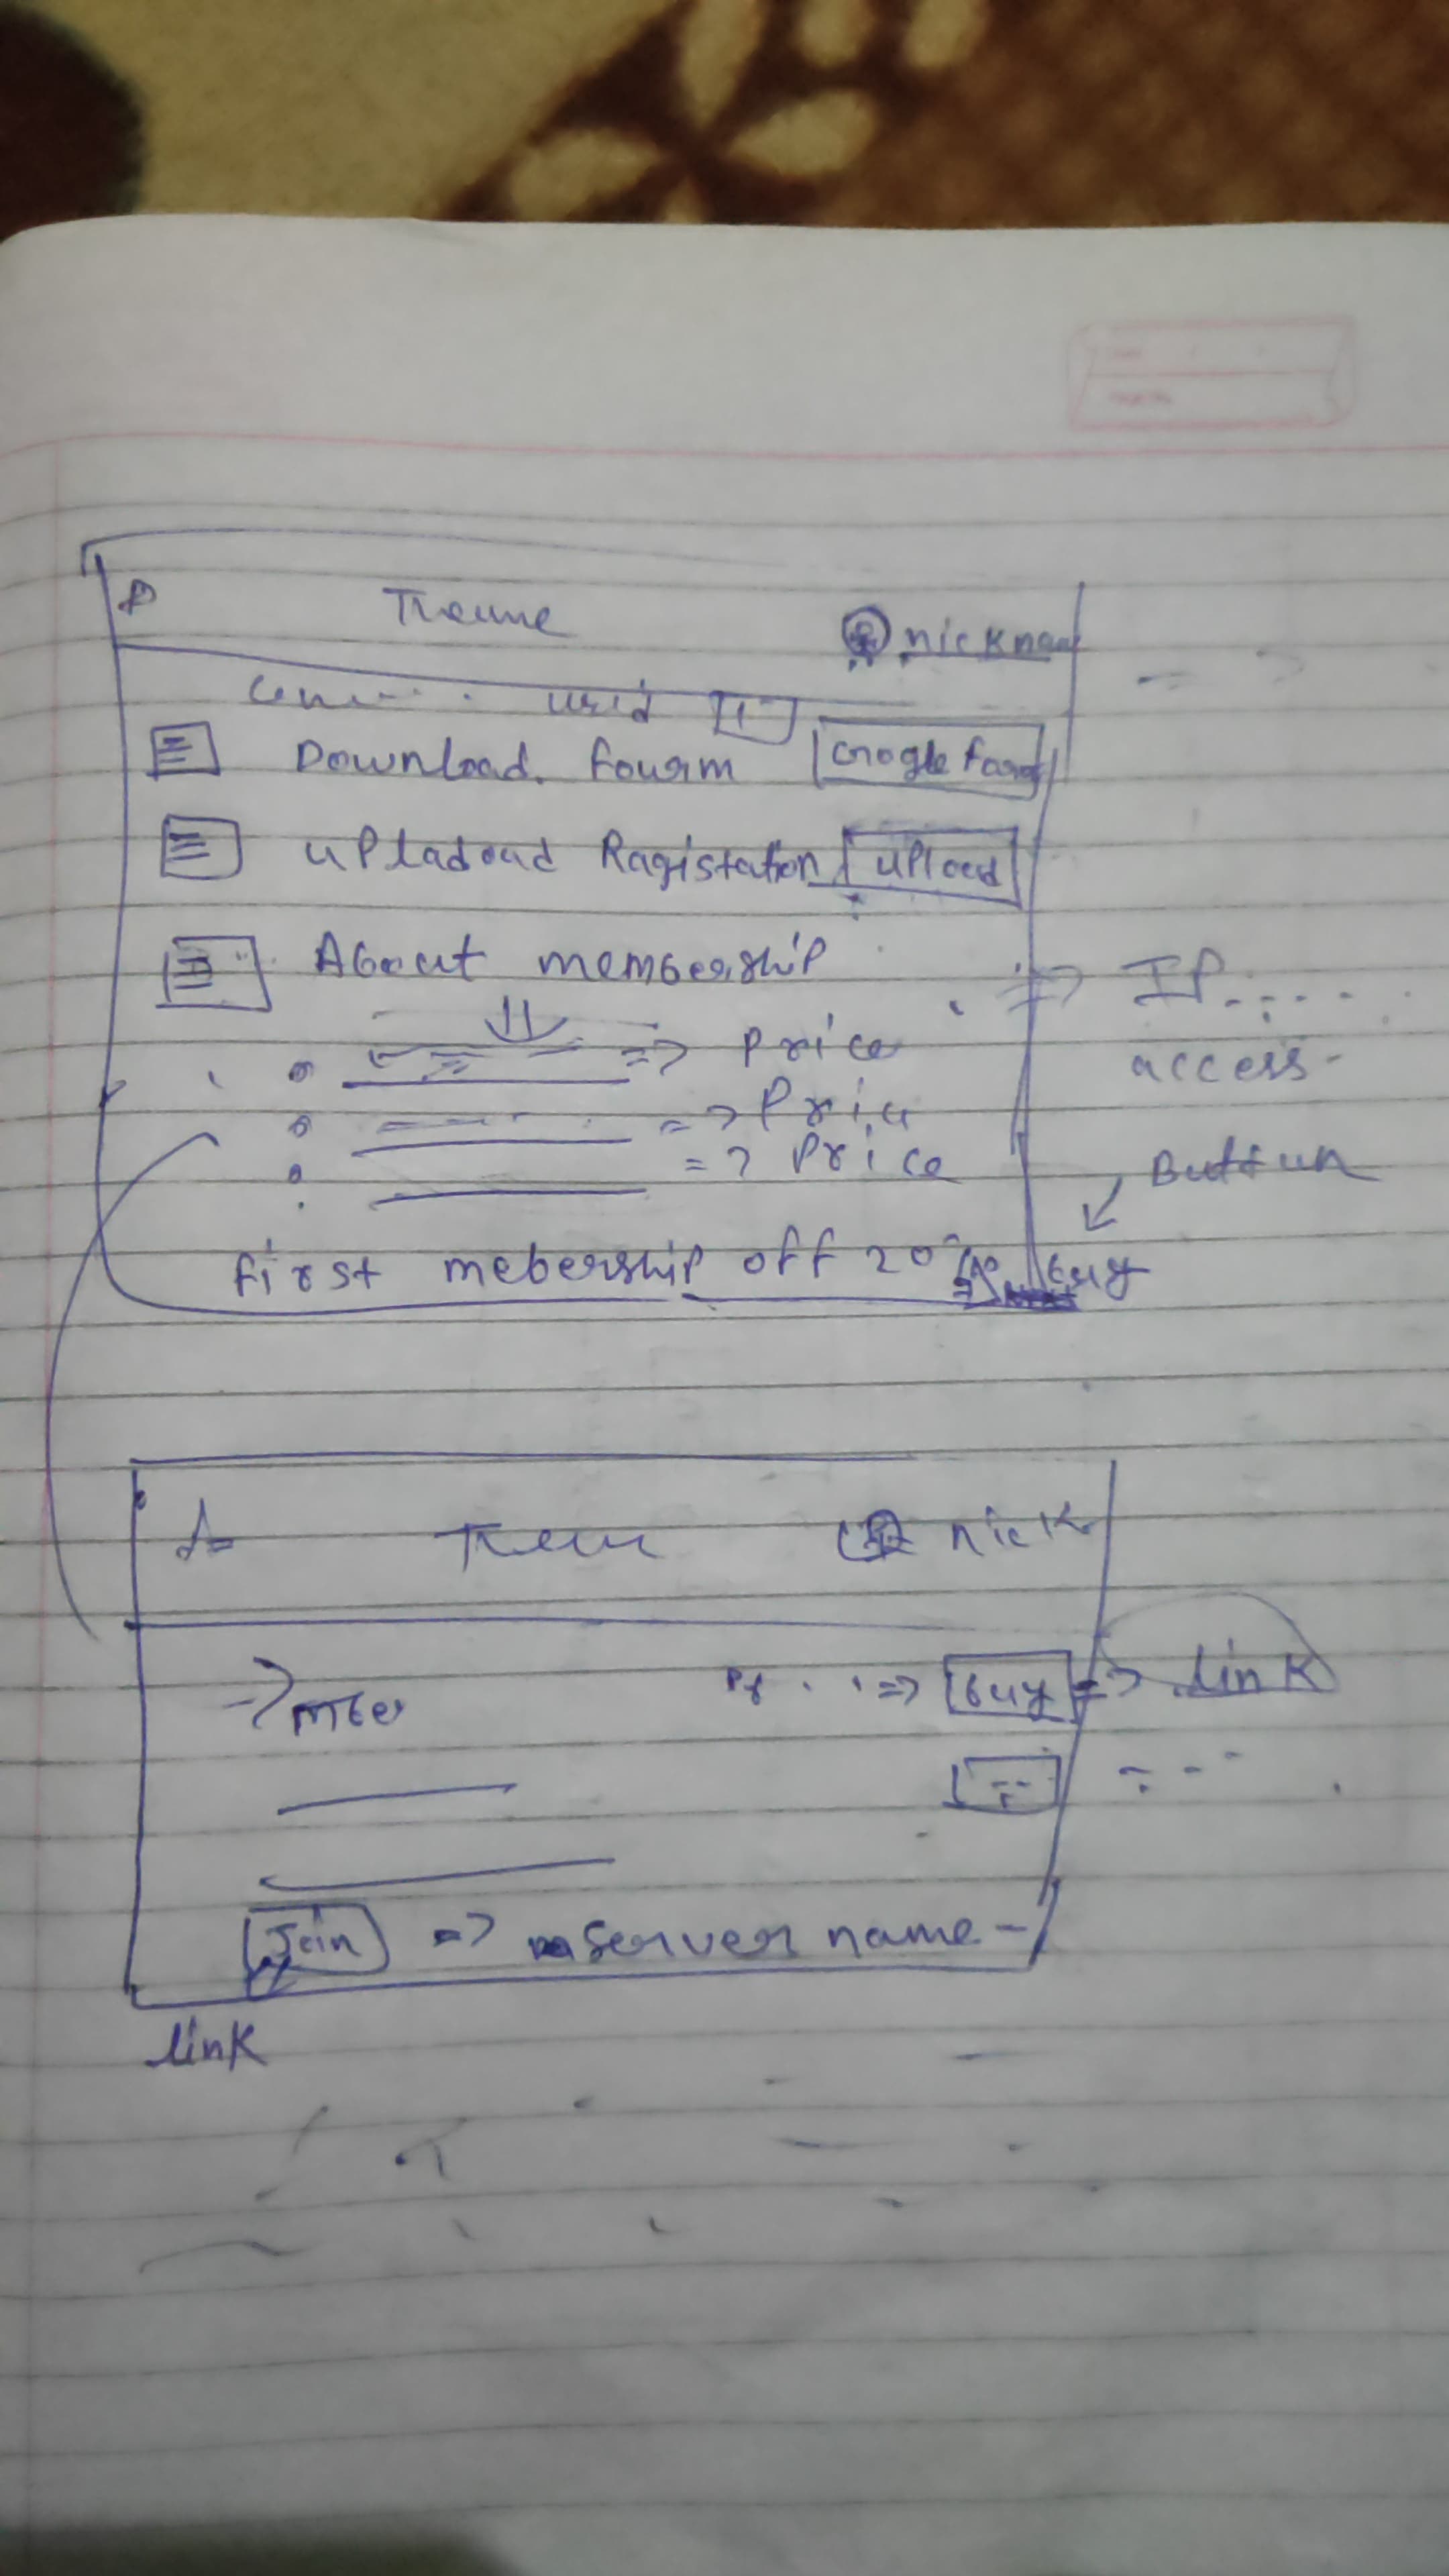 nickna
Download. fourm Google Form
uPladoad Ragistation upload
About membership
=> IP.....
access-
=> Price
=> Price
=> Price
Buttun
first mebership off 20% buy
nick
=> buy => link
Join => server name-
link